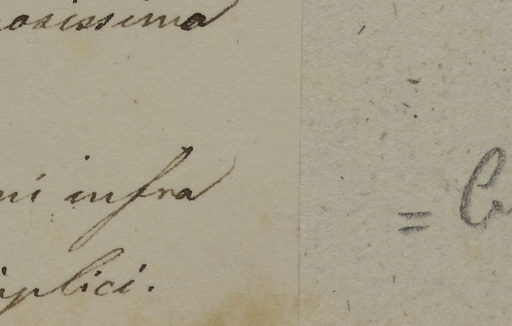 osissima
ni infra
iplici.
=